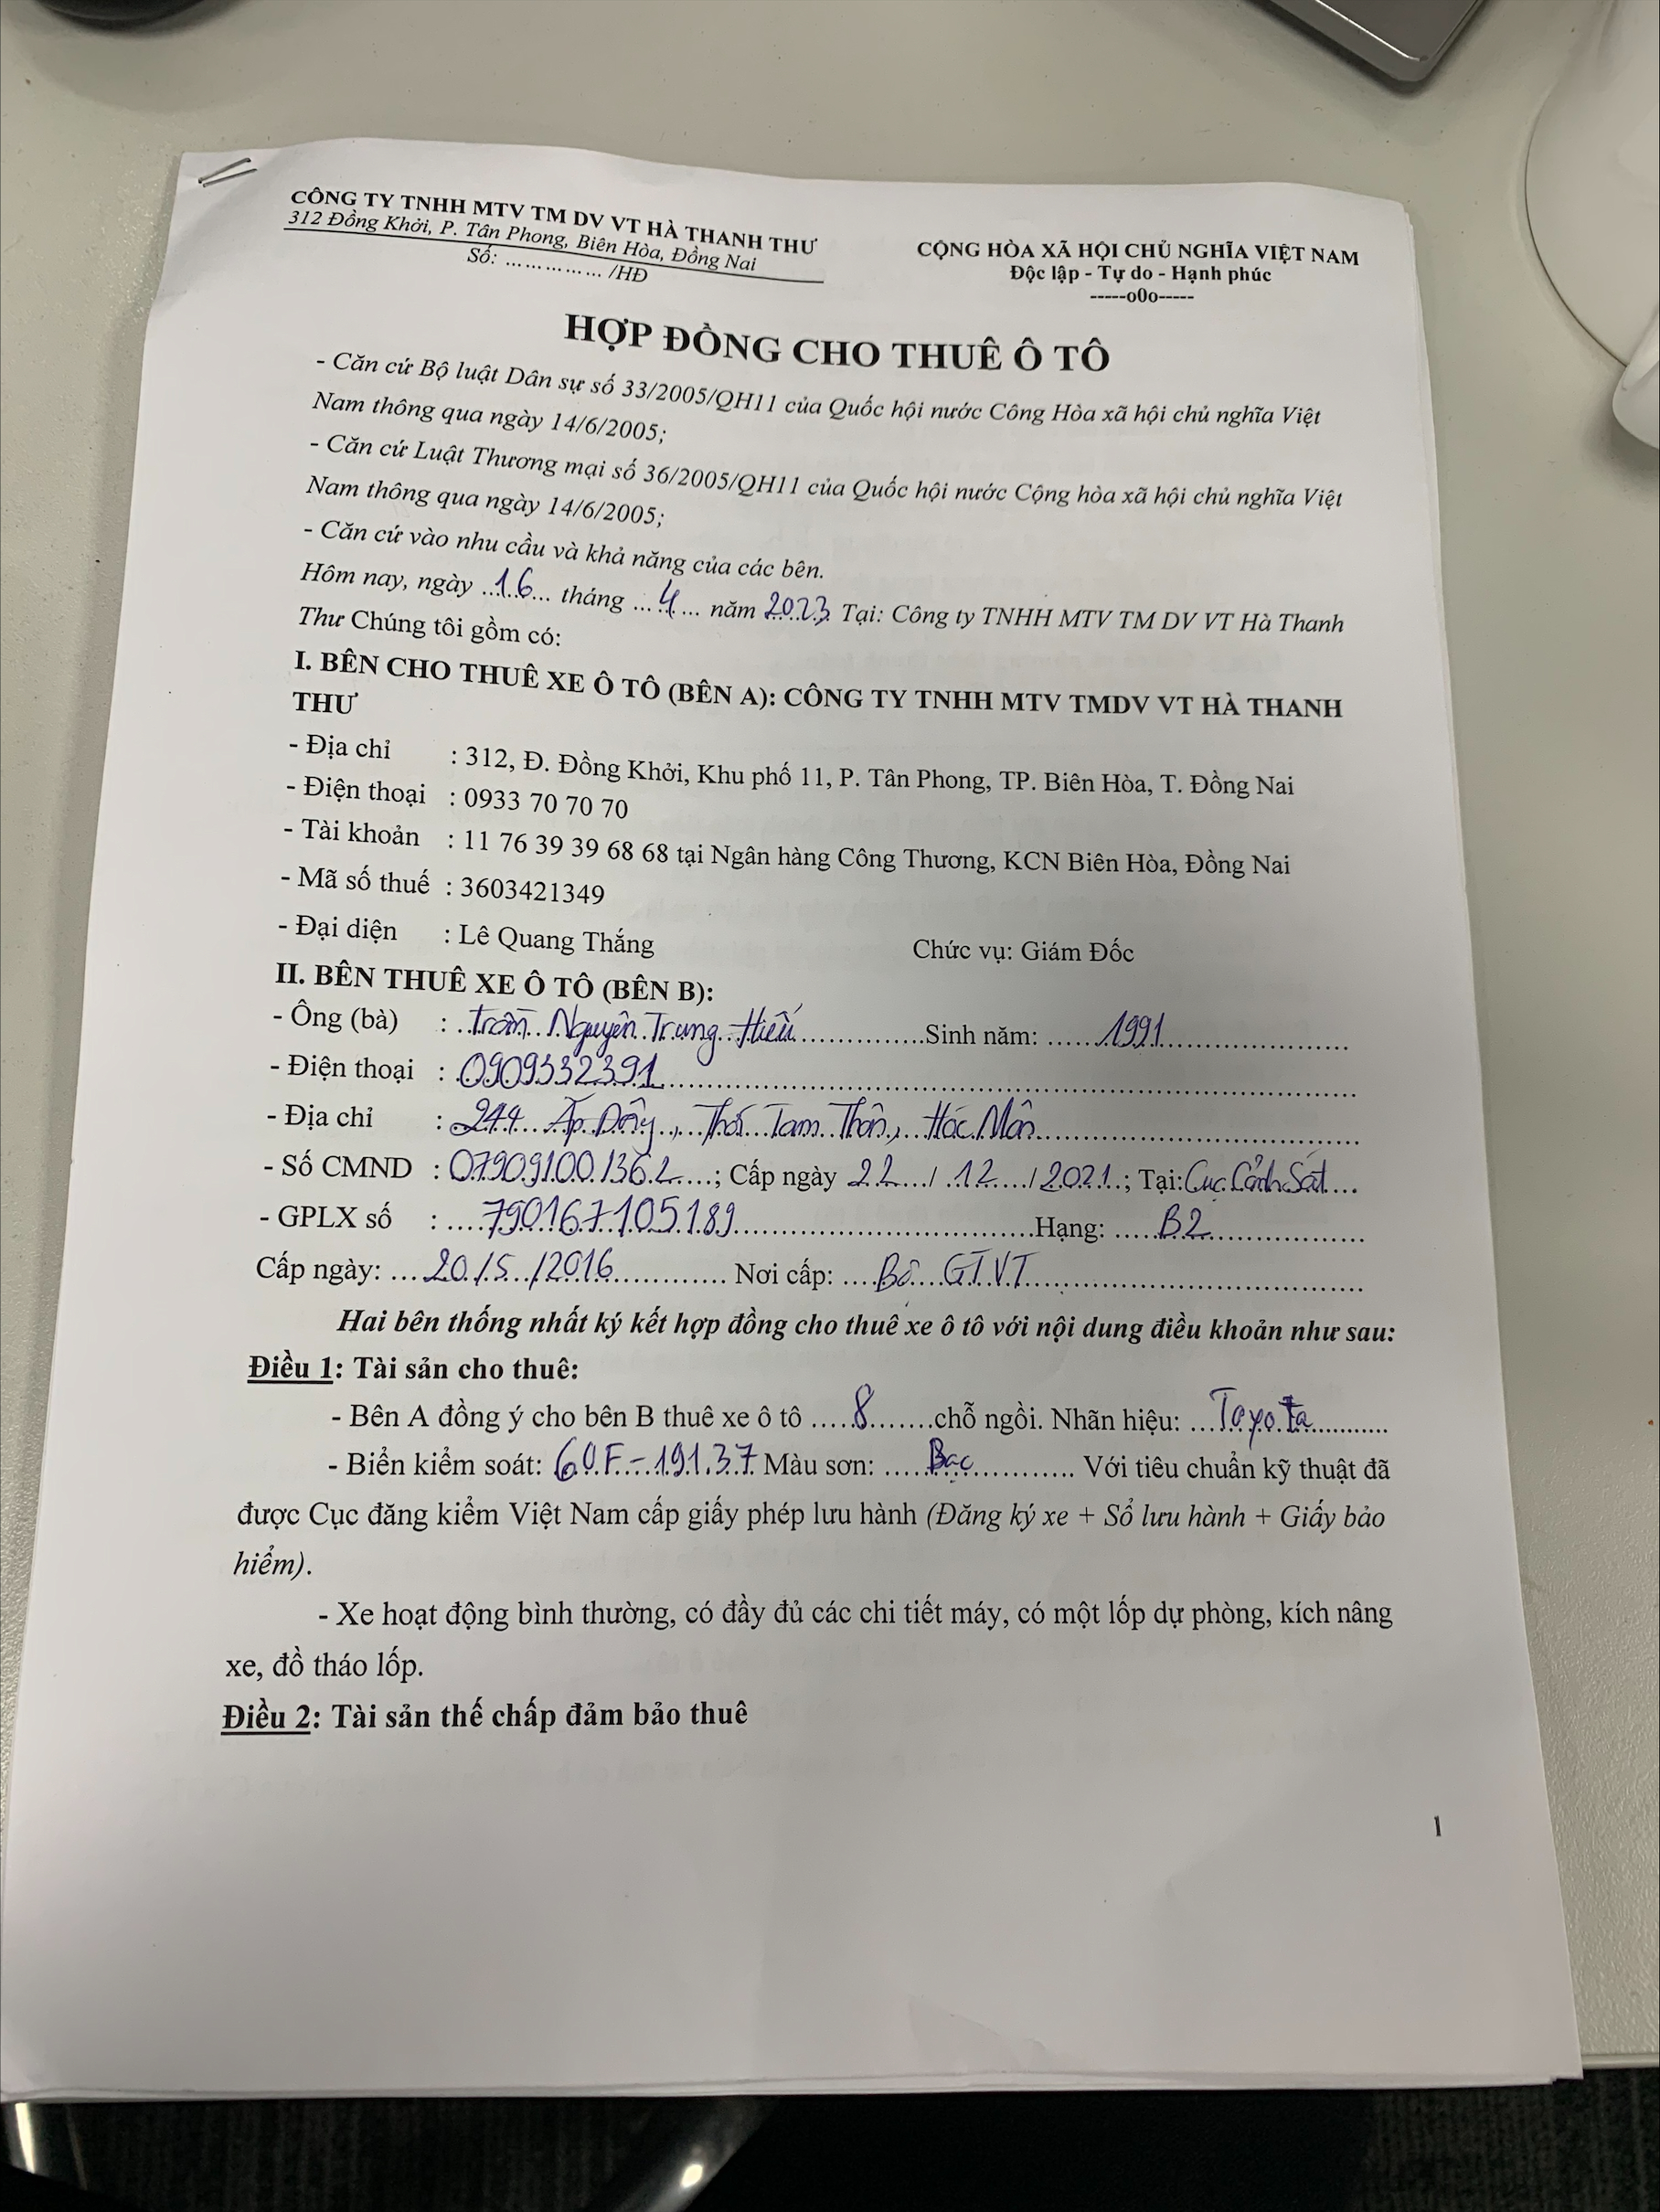 CÔNG TY TNHH MTV TM DV VT HÀ THANH THƯ
312 Đồng Khởi, P. Tân Phong, Biên Hòa, Đồng Nai
Số: …………… /HĐ
CỘNG HÒA XÃ HỘI CHỦ NGHĨA VIỆT NAM
Độc lập - Tự do - Hạnh phúc
-----o0o-----
HỢP ĐỒNG CHO THUÊ Ô TÔ
- Căn cứ Bộ luật Dân sự số 33/2005/QH11 của Quốc hội nước Công Hòa xã hội chủ nghĩa Việt
Nam thông qua ngày 14/6/2005;
- Căn cứ Luật Thương mại số 36/2005/QH11 của Quốc hội nước Cộng hòa xã hội chủ nghĩa Việt
Nam thông qua ngày 14/6/2005;
- Căn cứ vào nhu cầu và khả năng của các bên.
Hôm nay, ngày 16 tháng 4 năm 2023 Tại: Công ty TNHH MTV TM DV VT Hà Thanh
Thư Chúng tôi gồm có:
I. BÊN CHO THUÊ XE Ô TÔ (BÊN A): CÔNG TY TNHH MTV TMDV VT HÀ THANH
THƯ
- Địa chỉ : 312, Đ. Đồng Khởi, Khu phố 11, P. Tân Phong, TP. Biên Hòa, T. Đồng Nai
- Điện thoại : 0933 70 70 70
- Tài khoản : 11 76 39 39 68 68 tại Ngân hàng Công Thương, KCN Biên Hòa, Đồng Nai
- Mã số thuế : 3603421349
- Đại diện : Lê Quang Thắng Chức vụ: Giám Đốc
II. BÊN THUÊ XE Ô TÔ (BÊN B):
- Ông (bà) : Trần Nguyên Trung Hiếu Sinh năm: 1991
- Điện thoại : 0909332391
- Địa chỉ : 244 Ấp Đông, Thới Tam Thôn, Hóc Môn
- Số CMND : 079091001362; Cấp ngày 22/12/2021; Tại: Cục Cảnh Sát
- GPLX số : 790167105189 Hạng: B2
Cấp ngày: 20/5/2016 Nơi cấp: Bộ GTVT
Hai bên thống nhất ký kết hợp đồng cho thuê xe ô tô với nội dung điều khoản như sau:
Điều 1: Tài sản cho thuê:
- Bên A đồng ý cho bên B thuê xe ô tô 8 chỗ ngồi. Nhãn hiệu: Toyota
- Biển kiểm soát: 60F-191.37 Màu sơn: Bạc Với tiêu chuẩn kỹ thuật đã
được Cục đăng kiểm Việt Nam cấp giấy phép lưu hành (Đăng ký xe + Sổ lưu hành + Giấy bảo
hiểm).
- Xe hoạt động bình thường, có đầy đủ các chi tiết máy, có một lốp dự phòng, kích nâng
xe, đồ tháo lốp.
Điều 2: Tài sản thế chấp đảm bảo thuê
1